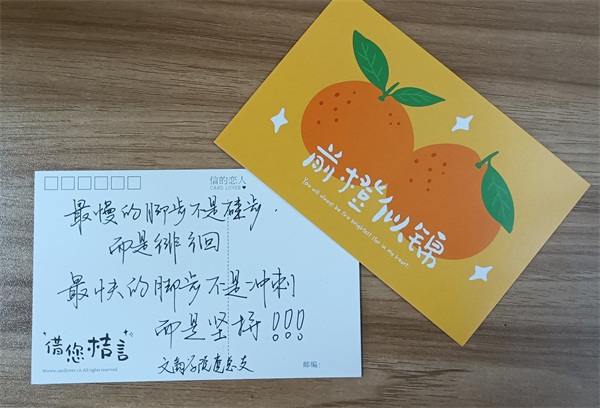 前橙似锦
You will always be the brightest star in my heart
信的恋人
CARD LOVER
最慢的脚步不是跬步，
而是徘徊
最快的脚步不是冲刺
而是坚持!!!
借您桔言
©www.cardlover.cn All rights reserved
邮编: